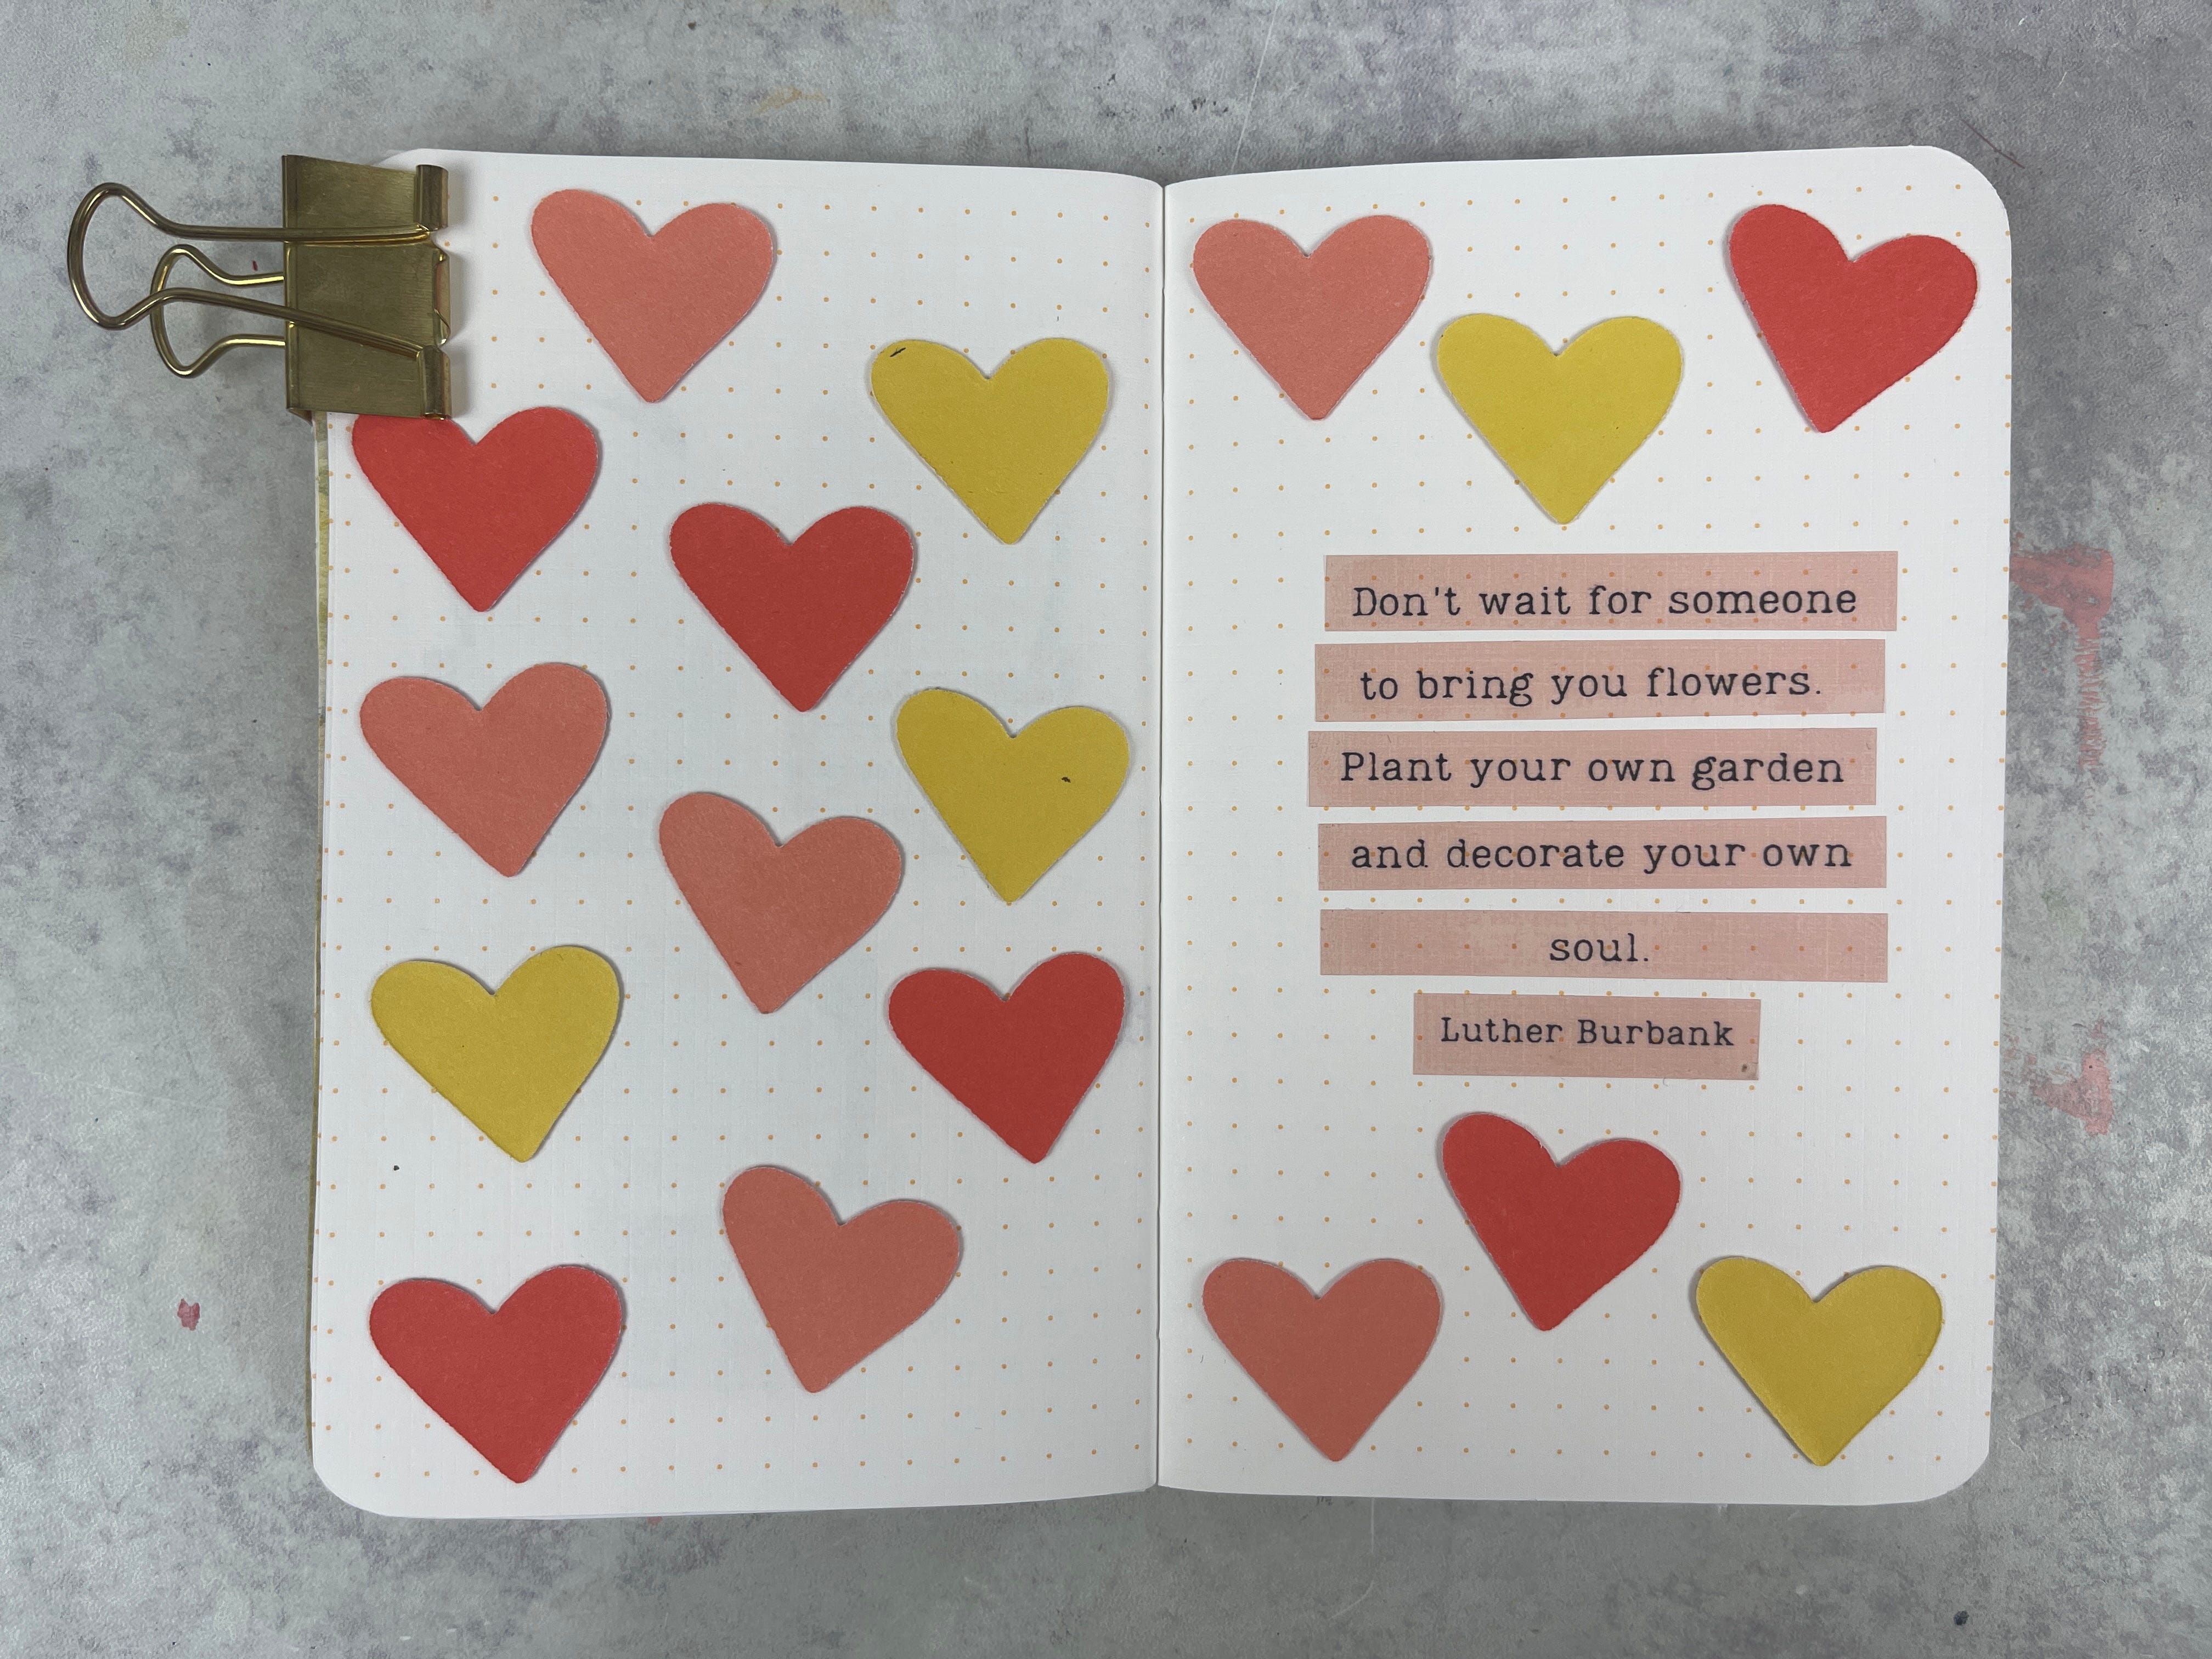 Don't wait for someone
to bring you flowers.
Plant your own garden
and decorate your own
soul.
Luther Burbank